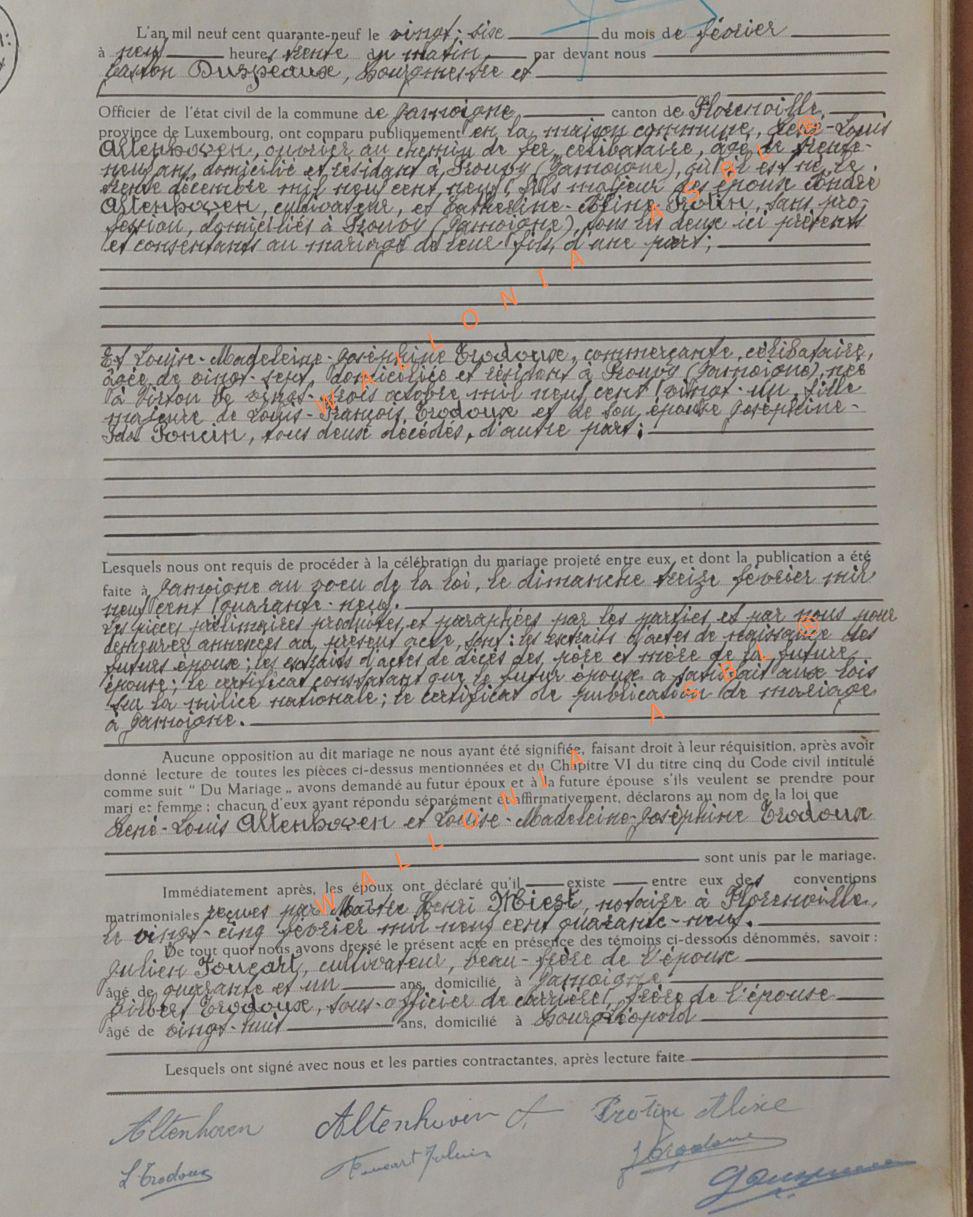 L'an mil neuf cent quarante-neuf le vingt-six du mois de février
à neuf heures trente du matin par devant nous
Gaston Duspeaux, bourgmestre et
Officier de l'état civil de la commune de Jamoigne canton de Florenville
province de Luxembourg, ont comparu publiquement en la maison commune, René-Louis
Altenhoven, ouvrier au chemin de fer, célibataire, âgé de trente-
neuf ans, domicilié et résidant à Prouvy (Jamoigne), où il est né, le
trente décembre mil neuf cent neuf, fils majeur des époux André
Altenhoven, cultivateur, et Catherine-Aline Protin, sans pro-
fession, domiciliés à Prouvy (Jamoigne), tous les deux ici présents
et consentants au mariage de leur fils, d'une part;
Et Louise-Madeleine-Joséphine Trodoux, commerçante, célibataire,
âgée de vingt-sept, domiciliée et résidant à Prouvy (Jamoigne), née
à Virton le vingt-trois octobre mil neuf cent vingt-un, fille
majeure de Louis-François Trodoux et de son épouse Joséphine-
Ida Poncin, tous deux décédés, d'autre part;
Lesquels nous ont requis de procéder à la célébration du mariage projeté entre eux, et dont la publication a été
faite à Jamoigne au voeu de la loi, le dimanche treize février mil
neuf cent quarante-neuf.
Les pièces préliminaires produites et paraphées par les parties et par nous pour
demeurer annexées au présent acte, sont: les extraits d'actes de naissance des
futurs époux; les extraits d'actes de décès des père et mère de la future
épouse; le certificat constatant que le futur époux a satisfait aux lois
sur la milice nationale; le certificat de publication de mariage
à Jamoigne.
Aucune opposition au dit mariage ne nous ayant été signifiée, faisant droit à leur réquisition, après avoir
donné lecture de toutes les pièces ci-dessus mentionnées et du Chapitre VI du titre cinq du Code civil intitulé
comme suit " Du Mariage „ avons demandé au futur époux et à la future épouse s'ils veulent se prendre pour
mari et femme ; chacun d'eux ayant répondu séparément et affirmativement, déclarons au nom de la loi que
René-Louis Altenhoven et Louise-Madeleine-Joséphine Trodoux
sont unis par le mariage.
Immédiatement après, les époux ont déclaré qu'il existe entre eux des conventions
matrimoniales reçues par Maître Henri Miest, notaire à Florenville,
le vingt-cinq février mil neuf cent quarante-neuf.
De tout quoi nous avons dressé le présent acte en présence des témoins ci-dessous dénommés, savoir :
Julien Foucart, cultivateur, beau-frère de l'épouse
âgé de quarante et un ans, domicilié à Jamoigne
Gilbert Trodoux, sous-officier de carrière, frère de l'épouse
âgé de vingt-huit ans, domicilié à Bourg-Léopold
Lesquels ont signé avec nous et les parties contractantes, après lecture faite
Altenhoven Altenhoven Protin Aline
L Trodoux Foucart Julien Trodoux
WALLONIA ASBL ©
WALLONIA ASBL ©